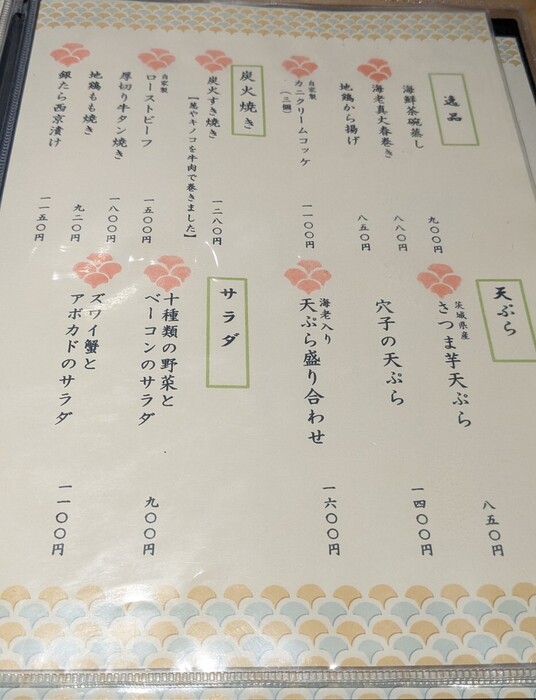 逸品
海鮮茶碗蒸し
九〇〇円
海老真丈春巻き
八八〇円
地鶏から揚げ
八五〇円
自家製
カニクリームコロッケ
(三個)
一一〇〇円
炭火焼き
炭火すき焼き
【葱やキノコを牛肉で巻きました】
一二八〇円
自家製
ローストビーフ
一五〇〇円
厚切り牛タン焼き
一八〇〇円
地鶏もも焼き
九二〇円
銀たら西京漬け
一一五〇円
天ぷら
茨城県産
さつま芋天ぷら
八五〇円
穴子の天ぷら
一四〇〇円
海老入り
天ぷら盛り合わせ
一六〇〇円
サラダ
十種類の野菜と
ベーコンのサラダ
九〇〇円
ズワイ蟹と
アボカドのサラダ
一一〇〇円